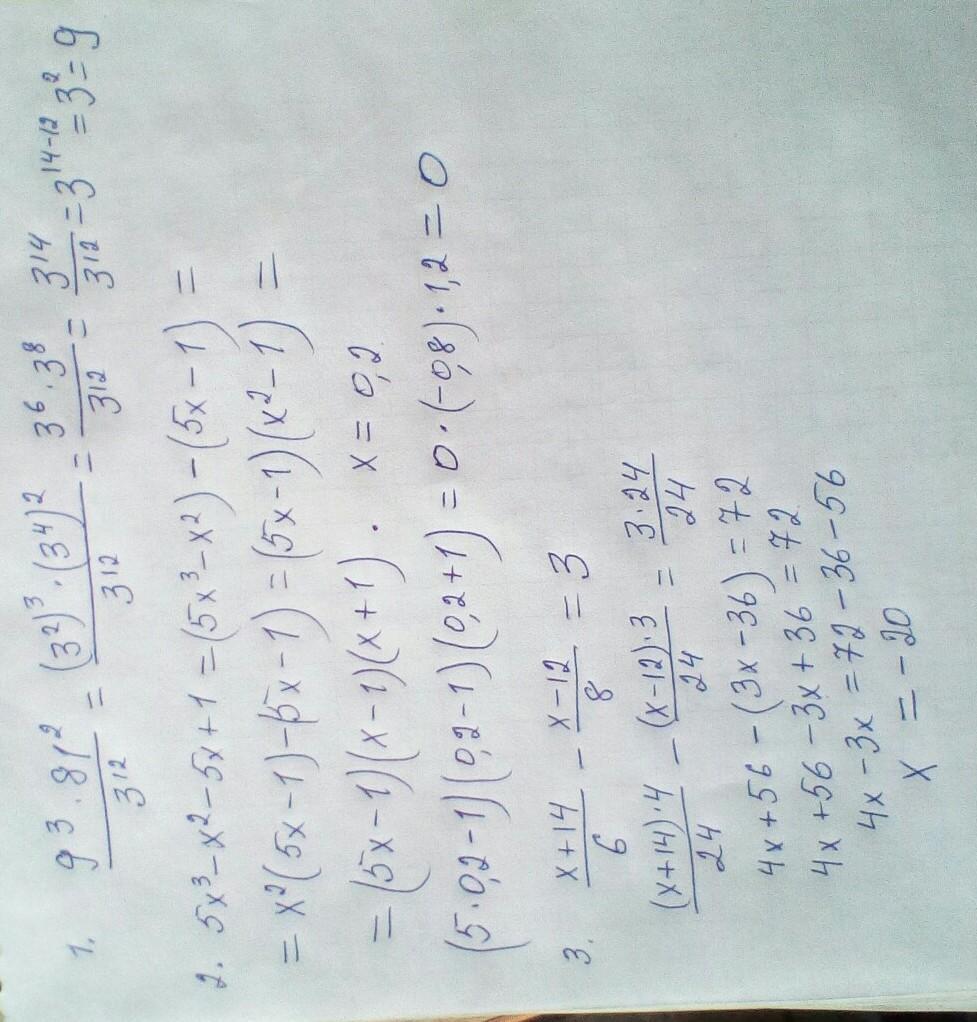 1. 9³·81²/3¹² = (3²)³·(3⁴)²/3¹² = 3⁶·3⁸/3¹² = 3¹⁴/3¹² = 3¹⁴⁻¹² = 3² = 9
2. 5x³-x²-5x+1 = (5x³-x²)-(5x-1) =
= x²(5x-1)-(5x-1) = (5x-1)(x²-1) =
= (5x-1)(x-1)(x+1). x = 0,2
(5·0,2-1)(0,2-1)(0,2+1) = 0·(-0,8)·1,2 = 0
3. x+14/6 - x-12/8 = 3
(x+14)·4/24 - (x-12)·3/24 = 3·24/24
4x+56-(3x-36) = 72
4x+56-3x+36 = 72
4x-3x = 72-36-56
x = -20